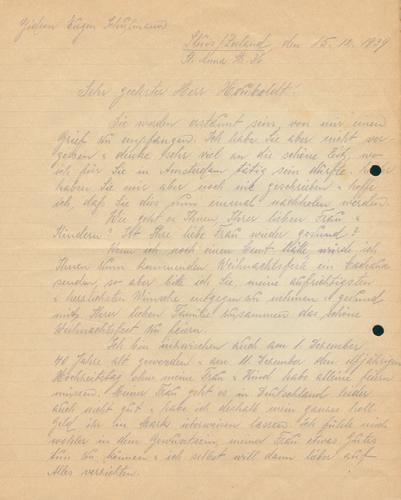 Gideon Eugen Schulmann
Sluis/Zeeland, den 15.12.1939
St. Anna Str. 26
Sehr geehrter Herr Homboldt!
Sie werden erstaunt sein, von mir einen
Brief zu empfangen. Ich habe Sie aber nicht ver
gessen & denke sehr viel an die schöne Zeit, wo
ich für Sie in Amsterdam tätig sein durfte.
haben Sie mir aber noch nie geschrieben & hoffe
ich, daß Sie dies nun einmal nachholen werden.
Wie geht es Ihnen, Ihrer lieben Frau &
Kindern? Ist Ihre liebe Frau wieder gesund?
Wenn ich noch einen Cent hätte, würde ich
Ihnen zum kommenden Weihnachtsfeste ein
senden, so aber bitte ich Sie, meine aufrichtigsten
& herzlichsten Wünsche entgegen zu nehmen & gesund
mit Ihrer lieben Familie zusammen das schöne
Weihnachtsfest zu feiern.
Ich bin inzwischen auch am 1. Dezember
40 Jahre alt geworden & am 11. Dezember den
Hochzeitstag ohne meine Frau & Kind habe alleine feiern
müssen. Meiner Frau geht es in Deutschland leider
auch nicht gut & habe ich deshalb mein ganzes holl.
Geld ihr in Marks überweisen lassen. Ich fühle mich
wohler in dem Bewusstsein, meiner Frau etwas Gutes
tun zu können & ich selbst will dann lieber auf
Alles verzichten.